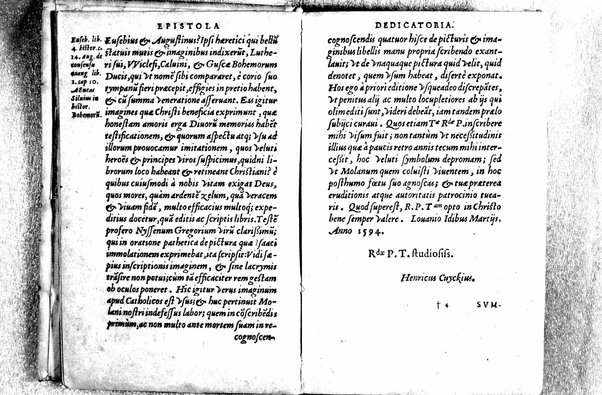 EPISTOLA
Euseb. lib.
4. histor. c.
14. Aug. de
consensu
euang. lib.
1. cap 10.
AEneas
Siluius in
histor.
Bohemorũ.
Eusebius & Augustinus? Ipsi hæretici qui bellũ
statuis mutis & imaginibus indixerũt, Luthe
ri sui, VViclefi, Caluini, & Guscæ Bohemorum
Ducis, qui vt nomẽ sibi compararet, è corio suo
tympanũ fieri præcepit, effigies in pretio habent,
& cũ summa veneratione asseruant. Eas igitur
imagines quæ Christi beneficia exprimunt, quæ
honestam amoris erga Diuorũ memorias habẽt
testificationem, & quorum aspectu atq; vsu ad
illorum prouocamur imitationem, quos veluti
heroës & principes viros suspicimus, quidni li-
brorum loco habeant & retineant Christiani? è
quibus cuiusmodi à nobis vitam exigat Deus,
quos mores, quàm ardentẽ zelum, quã veracem
& viuam fidẽ, multo efficacius multoq; expe-
ditius docetur, quã editis ac scriptis libris. Testẽ
profero Nyssenum Gregorium virũ clarissimũ;
qui in oratione pathetica de pictura quæ Isaaci
immolationem exprimebat, ita scripsit: Vidi sæ-
pius inscriptionis imaginem, & sine lacrymis
trãsire non potui; cùm tã efficaciter rem gestam
ob oculos poneret. Hic igitur verus imaginum
apud Catholicos est vsus; & huc pertinuit Mo-
lani nostri indefessus labor; quem in cõscribẽdis
primùm, ac non multo ante mortem suam in re-
cognoscen-
DEDICATORIA.
cognoscendis quatuor hisce de picturis & ima-
ginibus libellis manu propria scribendo exant-
lauit; vt de vnaquaque pictura quid velit, quid
denotet, quem vsum habeat, disertè exponat.
Hos ego à priori editione vsqueadeo discrepãtes,
vt penitus alij ac multo locupletiores ab ijs qui
olim editi sunt, videri debeãt, iam tandem prælo
subijci curaui. Quos etiam Tæ Rdæ P. inscribere
mihi visum fuit; non tantùm vt necessitudinis
illius quæ à paucis retro annis tecum mihi inter-
cessit, hoc veluti symbolum depromam; sed
vt Molanum quem coluisti viuentem, in hoc
posthumo fœtu suo agnoscas; & tua præterea
eruditionis atque autoritatis patrocinio tuea-
ris. Quod superest, R. P. Tam opto in Christo
bene semper valere. Louanio Idibus Martijs.
Anno 1594.
Rdæ P. T. studiosiss.
Henricus Cuyckius.
† 4 SVM-